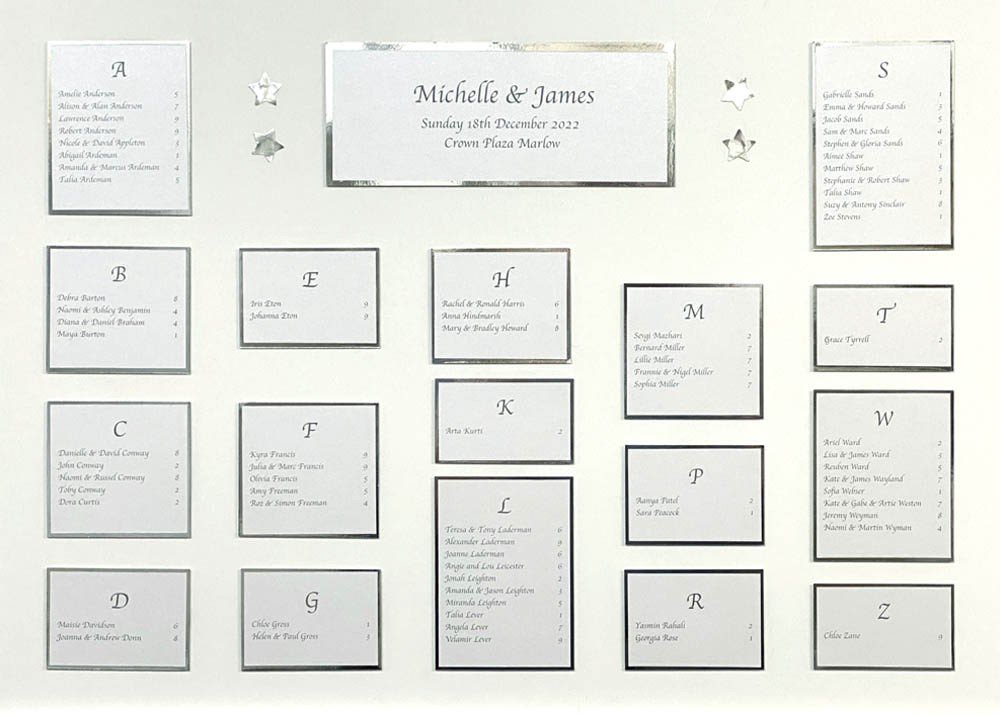 Michelle & James
Sunday 18th December 2022
Crown Plaza Marlow
A
Amelie Anderson 5
Alison & Alan Anderson 7
Lawrence Anderson 9
Robert Anderson 9
Nicole & David Appleton 3
Abigail Ardeman 1
Amanda & Marcus Ardeman 4
Talia Ardeman 5
B
Debra Barton 8
Naomi & Ashley Benjamin 4
Diana & Daniel Braham 4
Maya Burton 1
C
Danielle & David Conway 8
John Conway 2
Naomi & Russel Conway 8
Toby Conway 2
Dora Curtis 2
D
Maisie Davidson 6
Joanna & Andrew Donn 8
E
Iris Eton 9
Johanna Eton 9
F
Kyra Francis 9
Julia & Marc Francis 9
Olivia Francis 5
Amy Freeman 5
Roz & Simon Freeman 4
G
Chloe Gross 1
Helen & Paul Gross 3
H
Rachel & Ronald Harris 6
Anna Hindmarsh 1
Mary & Bradley Howard 8
K
Arta Kurti 2
L
Teresa & Tony Laderman 6
Alexander Laderman 9
Joanne Laderman 6
Angie and Lou Leicester 6
Jonah Leighton 2
Amanda & Jason Leighton 3
Miranda Leighton 5
Talia Lever 1
Angela Lever 7
Velamir Lever 9
M
Sevgi Mazhari 2
Bernard Miller 7
Lillie Miller 7
Frannie & Nigel Miller 7
Sophia Miller 7
P
Aanya Patel 2
Sara Peacock 1
R
Yasmin Rahali 2
Georgia Rose 1
S
Gabrielle Sands 1
Emma & Howard Sands 3
Jacob Sands 5
Sam & Marc Sands 4
Stephen & Gloria Sands 6
Aimee Shaw 1
Matthew Shaw 5
Stephanie & Robert Shaw 3
Talia Shaw 1
Suzy & Antony Sinclair 8
Zoe Stevens 1
T
Grace Tyrrell 2
W
Ariel Ward 2
Lisa & James Ward 3
Reuben Ward 5
Kate & James Wayland 7
Sofia Webner 1
Kate & Gabe & Artie Weston 7
Jeremy Weyman 8
Naomi & Martin Wyman 4
Z
Chloe Zane 9